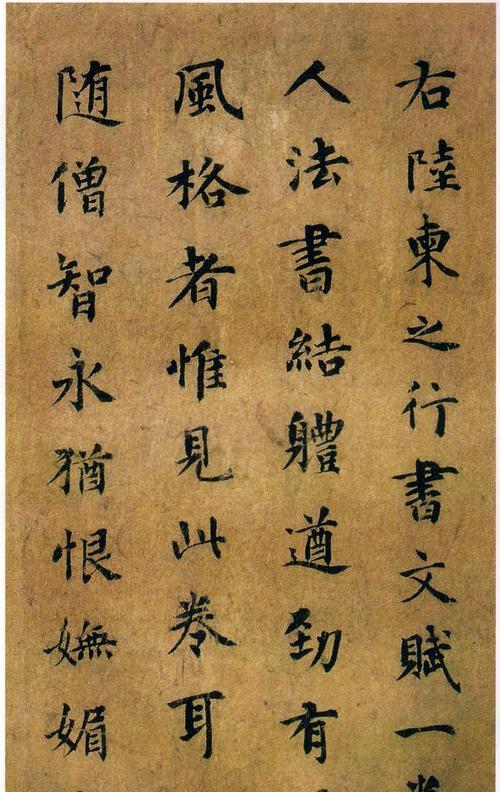 右陸柬之行書文賦一
人法書結軆遒勁有
風格者惟見此卷耳
随僧智永猶恨嫵媚